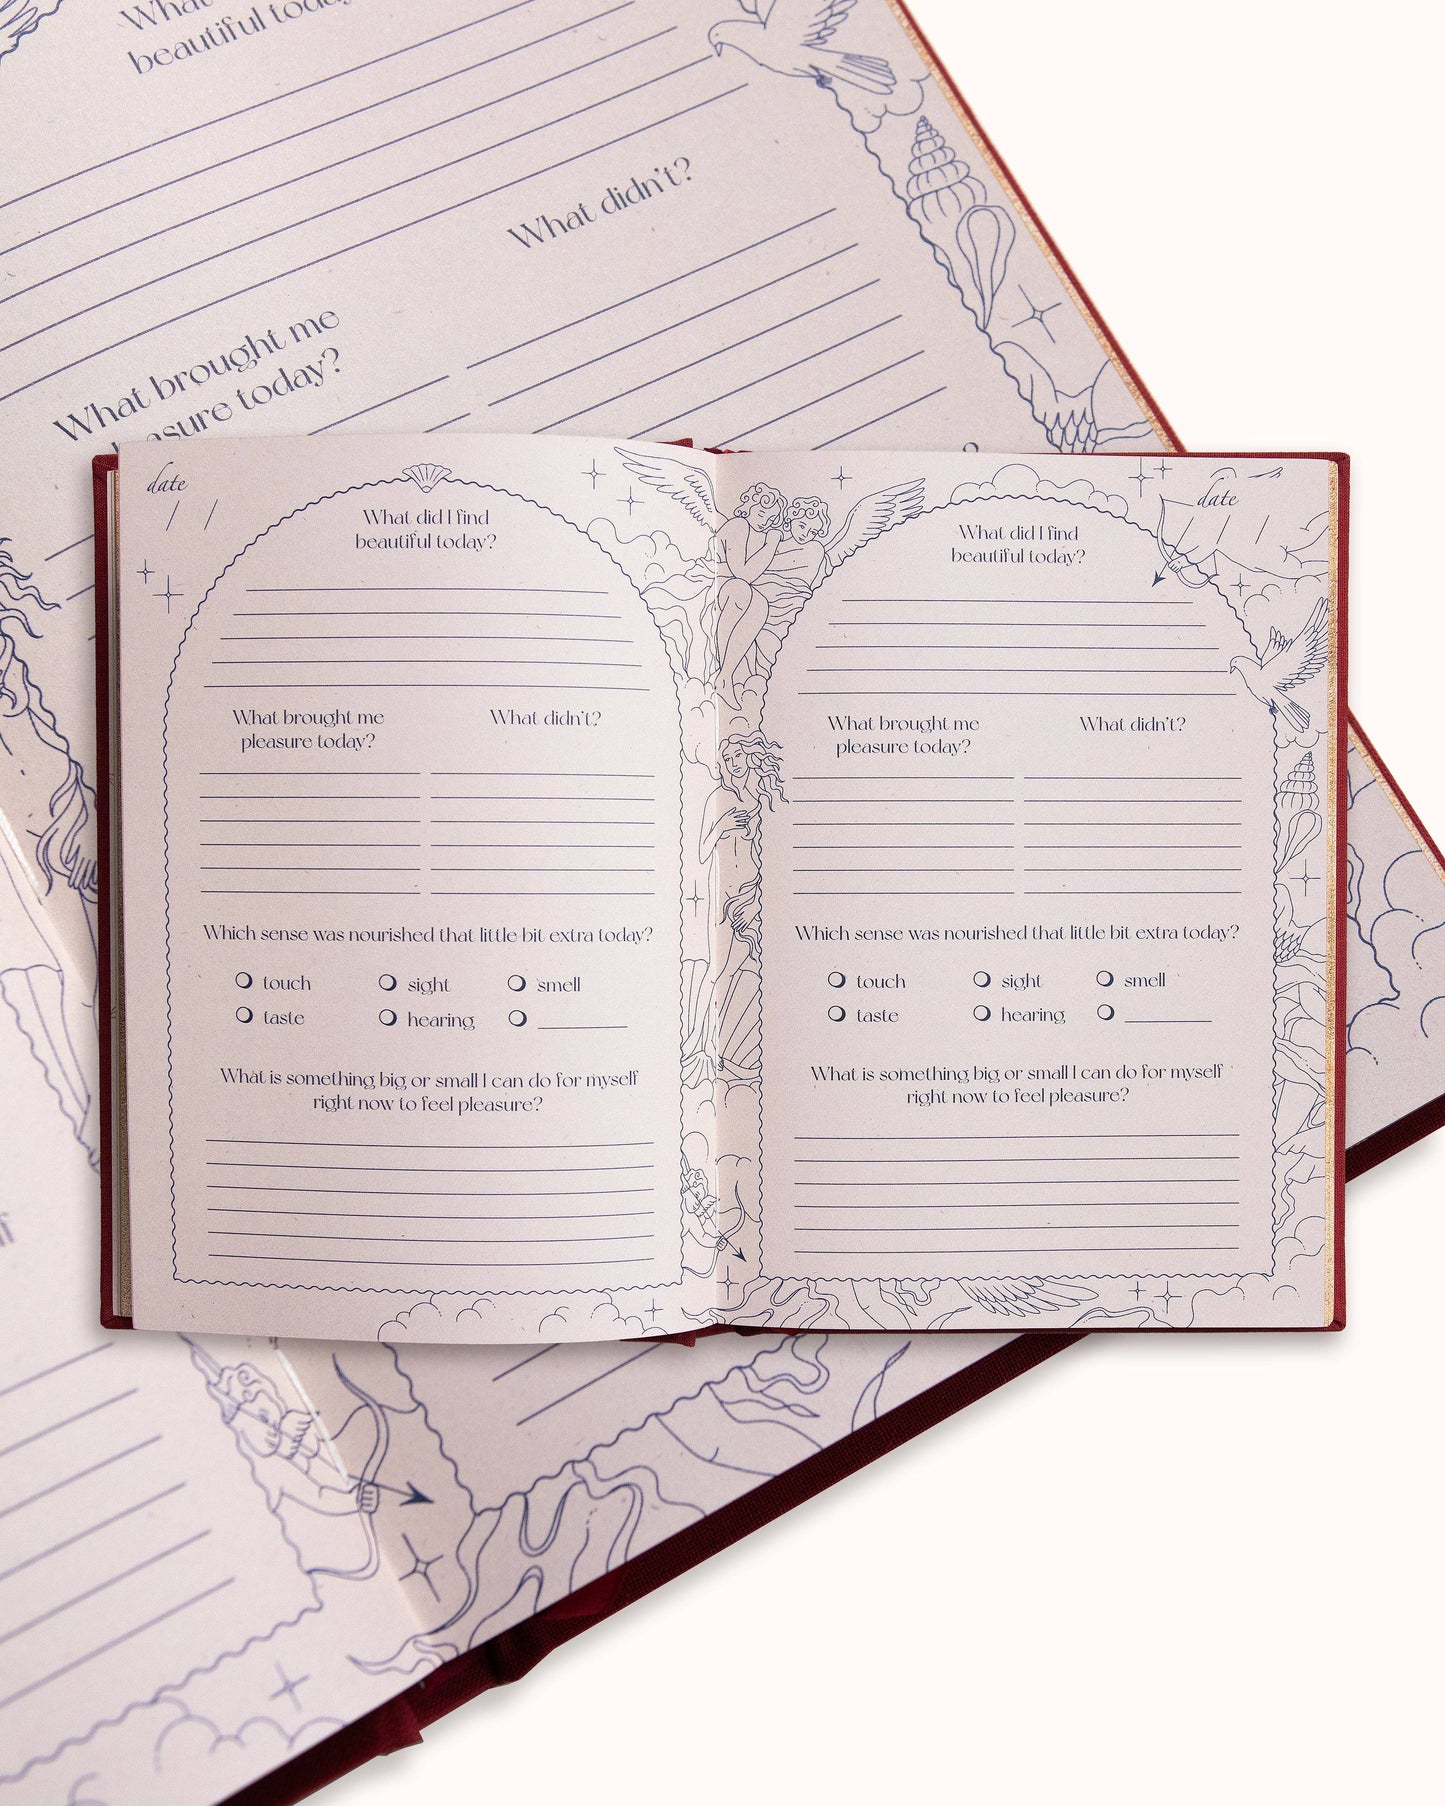 What
beautiful today?
What didn't?
What brought me
pleasure today?
date
/ /
What did I find
beautiful today?
What brought me
pleasure today?
What didn't?
Which sense was nourished that little bit extra today?
touch sight smell
taste hearing
What is something big or small I can do for myself
right now to feel pleasure?
date
/ / /
What did I find
beautiful today?
What brought me
pleasure today?
What didn't?
Which sense was nourished that little bit extra today?
touch sight smell
taste hearing
What is something big or small I can do for myself
right now to feel pleasure?